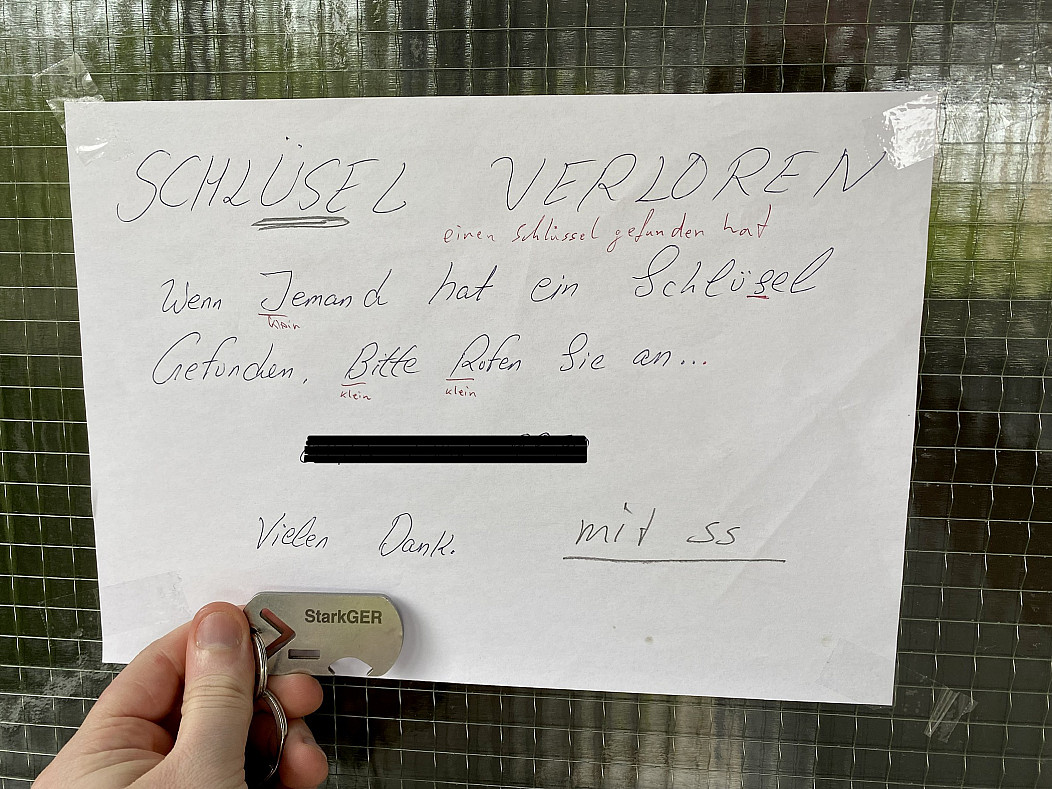 SCHLÜSEL VERLOREN
einen schlüssel gefunden hat
Wenn Jemand hat ein Schlüsel
klein
Gefunden. Bitte Rufen Sie an...
klein klein
Vielen Dank. mit ss
StarkGER